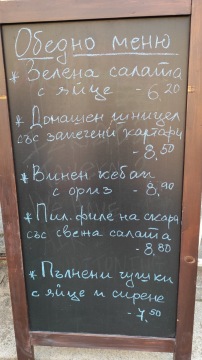 Обедно меню
* Зелена салата
с яйце - 6,20
* Домашен шницел
със запечени картофи
- 8,50
* Винен кебап
с ориз - 8,90
* Пил. филе на скара
със свежа салата
- 8,80
* Пълнени чушки
с яйце и сирене
- 7,50